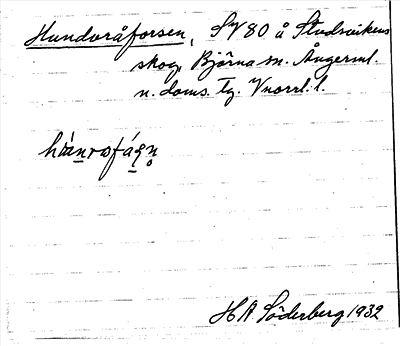 Hundvråforsen, SV 80 å Studsvikens
skog, Björna sn. Ångerml.
n. doms. Tg. Vnorrl. l.
H A Söderberg 1932